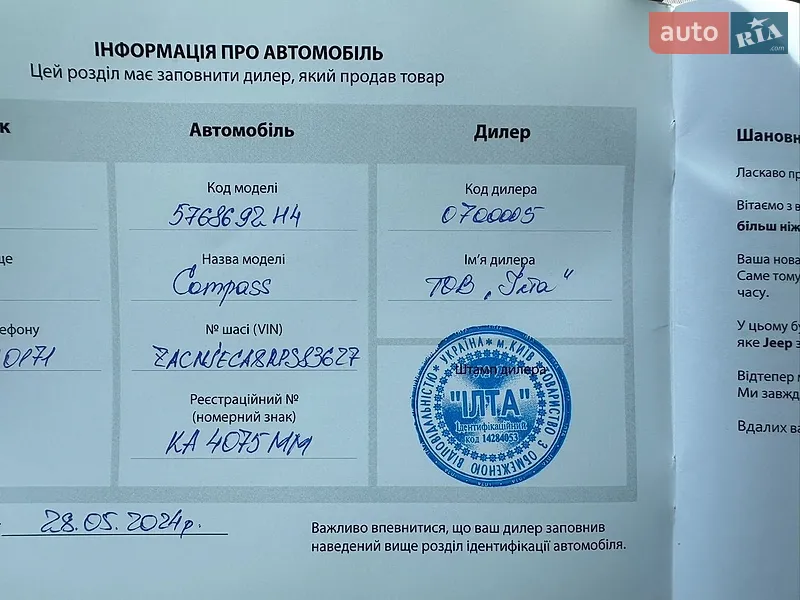 auto RIA.com
ІНФОРМАЦІЯ ПРО АВТОМОБІЛЬ
Цей розділ має заповнити дилер, який продав товар
к
Автомобіль
Дилер
Код моделі
5768692 H4
Код дилера
0700005
ще
Назва моделі
Compass
Ім'я дилера
ТОВ „Ілта"
ефону
0171
№ шасі (VIN)
Реєстраційний №
(номерний знак)
КА 4075 ММ
Штамп дилера
УКРАЇНА * м. КИЇВ
ТОВАРИСТВО З ОБМЕЖЕНОЮ ВІДПОВІДАЛЬНІСТЮ
"ІЛТА"
Ідентифікаційний
код 14284053
28.05.2024р.
Важливо впевнитися, що ваш дилер заповнив
наведений вище розділ ідентифікації автомобіля.
Шановн
Ласкаво пр
Вітаємо з в
більш ніж
Ваша нова
Саме тому
часу.
У цьому бу
яке Jeep з
Відтепер м
Ми завжд
Вдалих ва